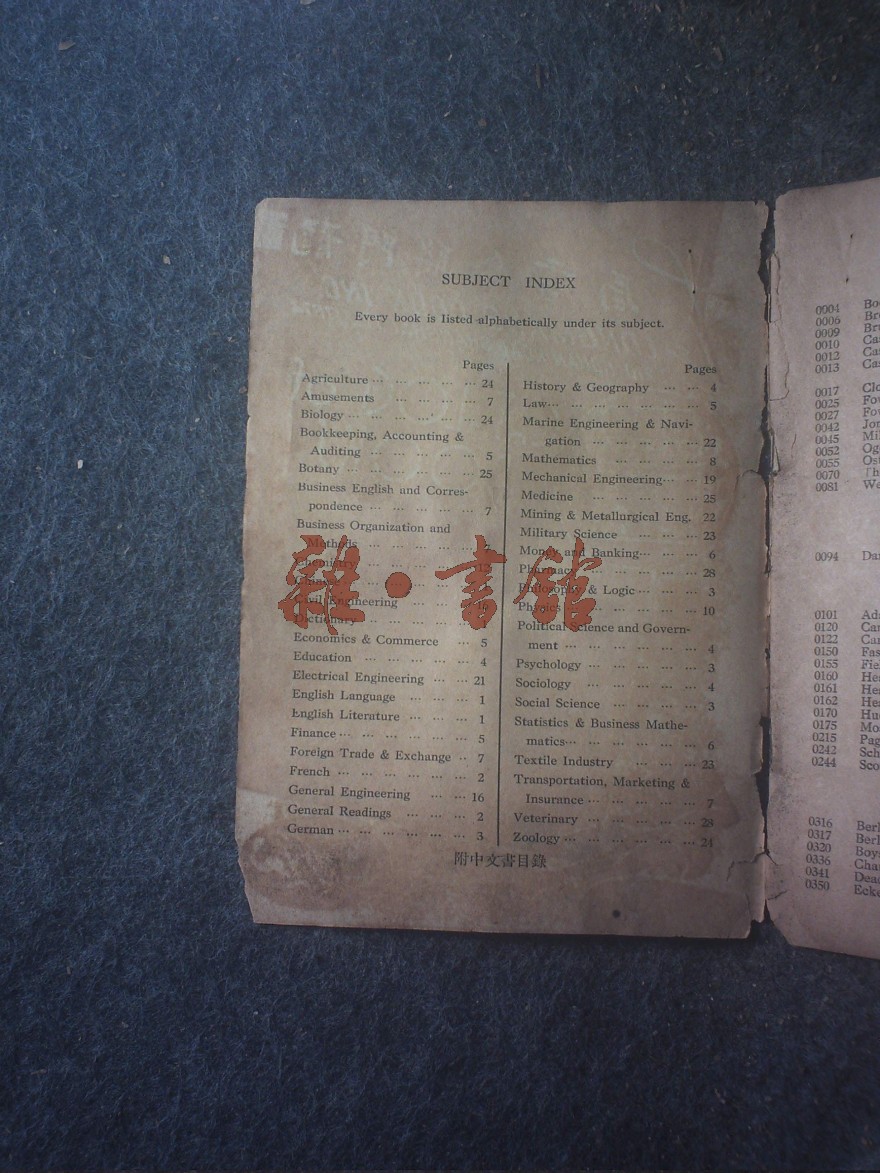 SUBJECT INDEX
Every book is listed alphabetically under its subject.
Pages
Agriculture ... ... ... ... ... 24
Amusements ... ... ... ... 7
Biology ... ... ... ... ... ... 24
Bookkeeping, Accounting &
Auditing ... ... ... ... ... 5
Botany ... ... ... ... ... ... 25
Business English and Corres-
pondence ... ... ... ... ... 7
Business Organization and
Methods ... ... ... ... ... 7
Chemistry ... ... ... ... ... 12
Chinese ... ... ... ... ...
Civil Engineering ... ... ...
Dictionary ... ... ... ... ...
Economics & Commerce ... 5
Education ... ... ... ... ... 4
Electrical Engineering ... ... 21
English Language ... ... ... 1
English Literature ... ... ... 1
Finance ... ... ... ... ... ... 5
Foreign Trade & Exchange .. 7
French ... ... ... ... ... ... 2
General Engineering ... ... 16
General Readings ... ... ... 2
German ... ... ... ... ... ... 3
Pages
History & Geography ... ... 4
Law ... ... ... ... ... ... ... 5
Marine Engineering & Navi-
gation ... ... ... ... ... 22
Mathematics ... ... ... ... 8
Mechanical Engineering ... ... 19
Medicine ... ... ... ... ... 25
Mining & Metallurgical Eng. 22
Military Science ... ... ... 23
Money and Banking ... ... ... 6
Pharmacy ... ... ... ... ... 28
Philosophy & Logic ... ... ... 3
Physics ... ... ... ... ... ... 10
Political Science and Govern-
ment ... ... ... ... ... ... 4
Psychology ... ... ... ... ... 3
Sociology ... ... ... ... ... 4
Social Science ... ... ... ... 3
Statistics & Business Mathe-
matics ... ... ... ... ... ... 6
Textile Industry ... ... ... 23
Transportation, Marketing &
Insurance ... ... ... ... ... 7
Veterinary ... ... ... ... ... 28
Zoology ... ... ... ... ... ... 24
附中文書目錄
雜·書館
0004
0006
0009
0010
0012
0013
0017
0025
0027
0042
0045
0052
0055
0070
0081
0094
0101
0120
0122
0150
0155
0160
0161
0162
0170
0175
0215
0242
0244
0316
0317
0320
0336
0341
0350